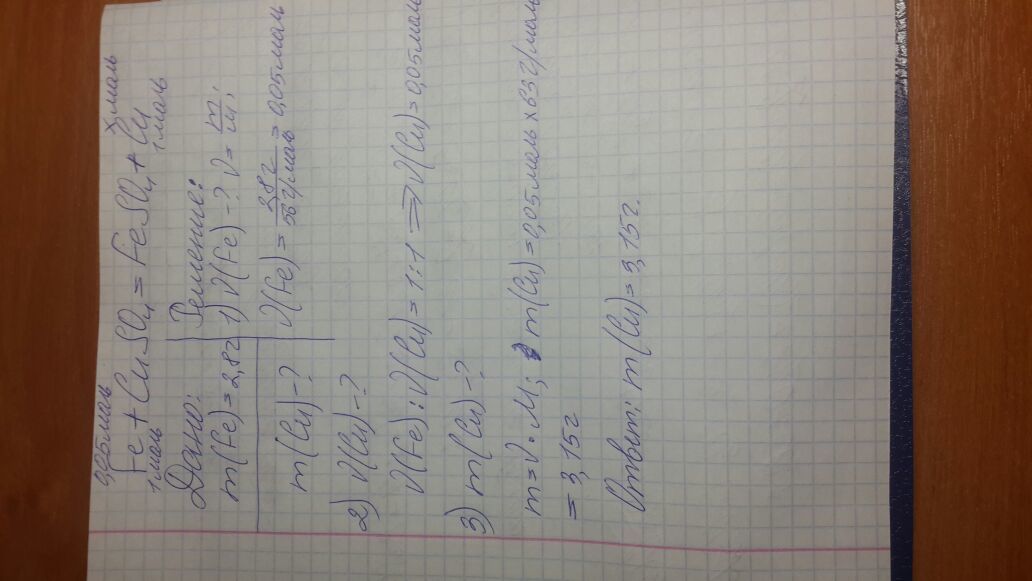 0,05моль х моль
Fe + CuSO4 = FeSO4 + Cu
1моль 1моль
Дано: Решение:
m(Fe) = 2,8г 1) ν(Fe) -? ν = m/M;
m(Cu) -? ν(Fe) = 2,8г/56г/моль = 0,05моль
2) ν(Cu) -?
ν(Fe) : ν(Cu) = 1:1 ⟹ ν(Cu) = 0,05моль
3) m(Cu) -?
m = ν · M; m(Cu) = 0,05моль × 63г/моль
= 3,15г
Ответ: m(Cu) = 3,15г.